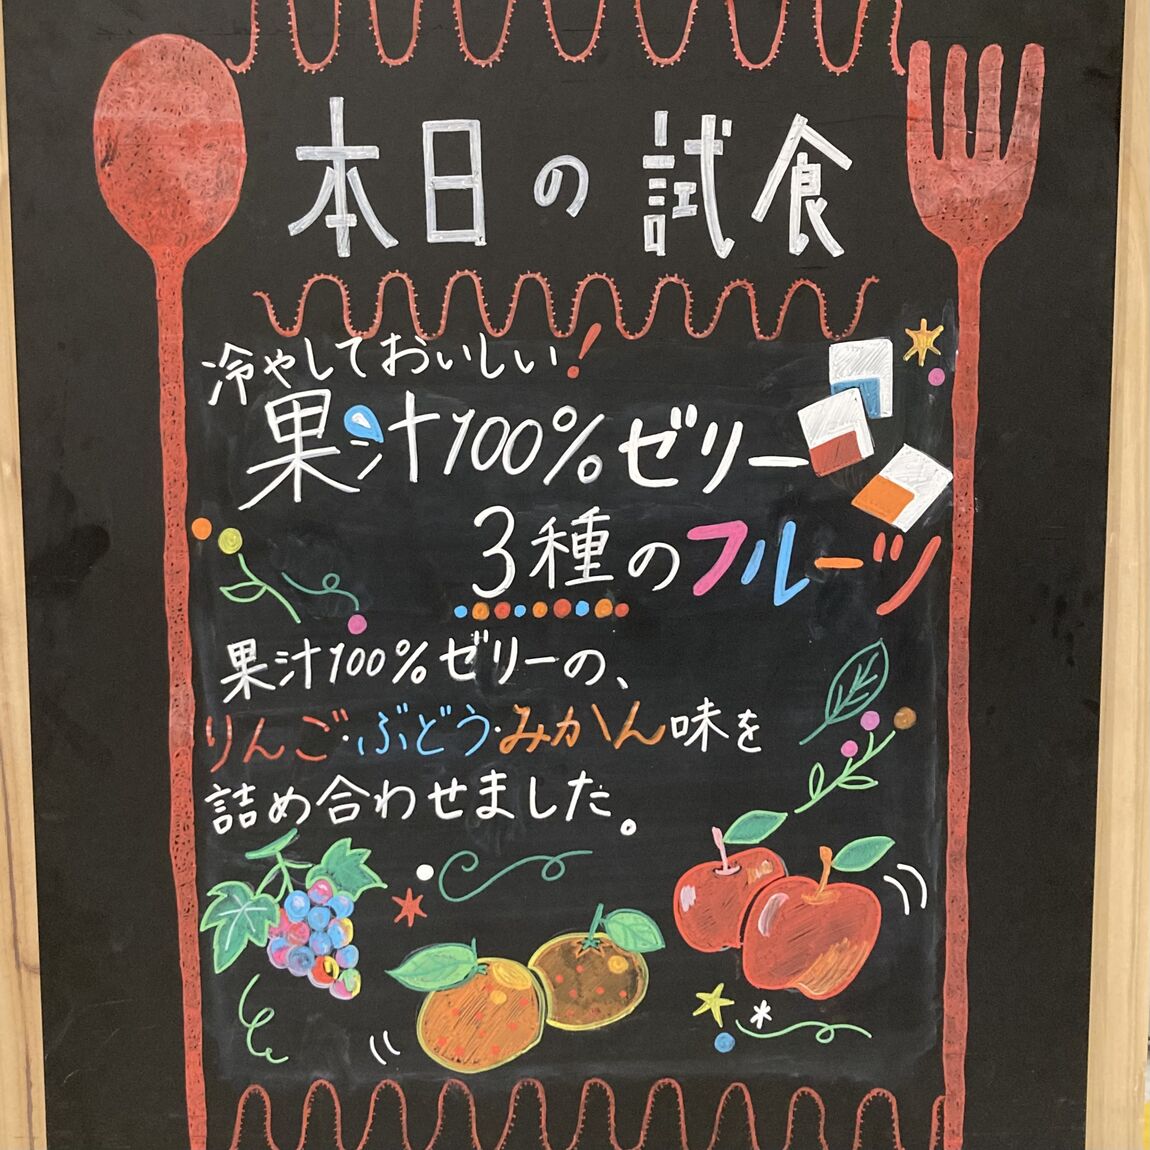 本日の試食
冷やしておいしい!
果汁100%ゼリー
3種のフルーツ
果汁100%ゼリーの、
りんご·ぶどう·みかん味を
詰め合わせました。